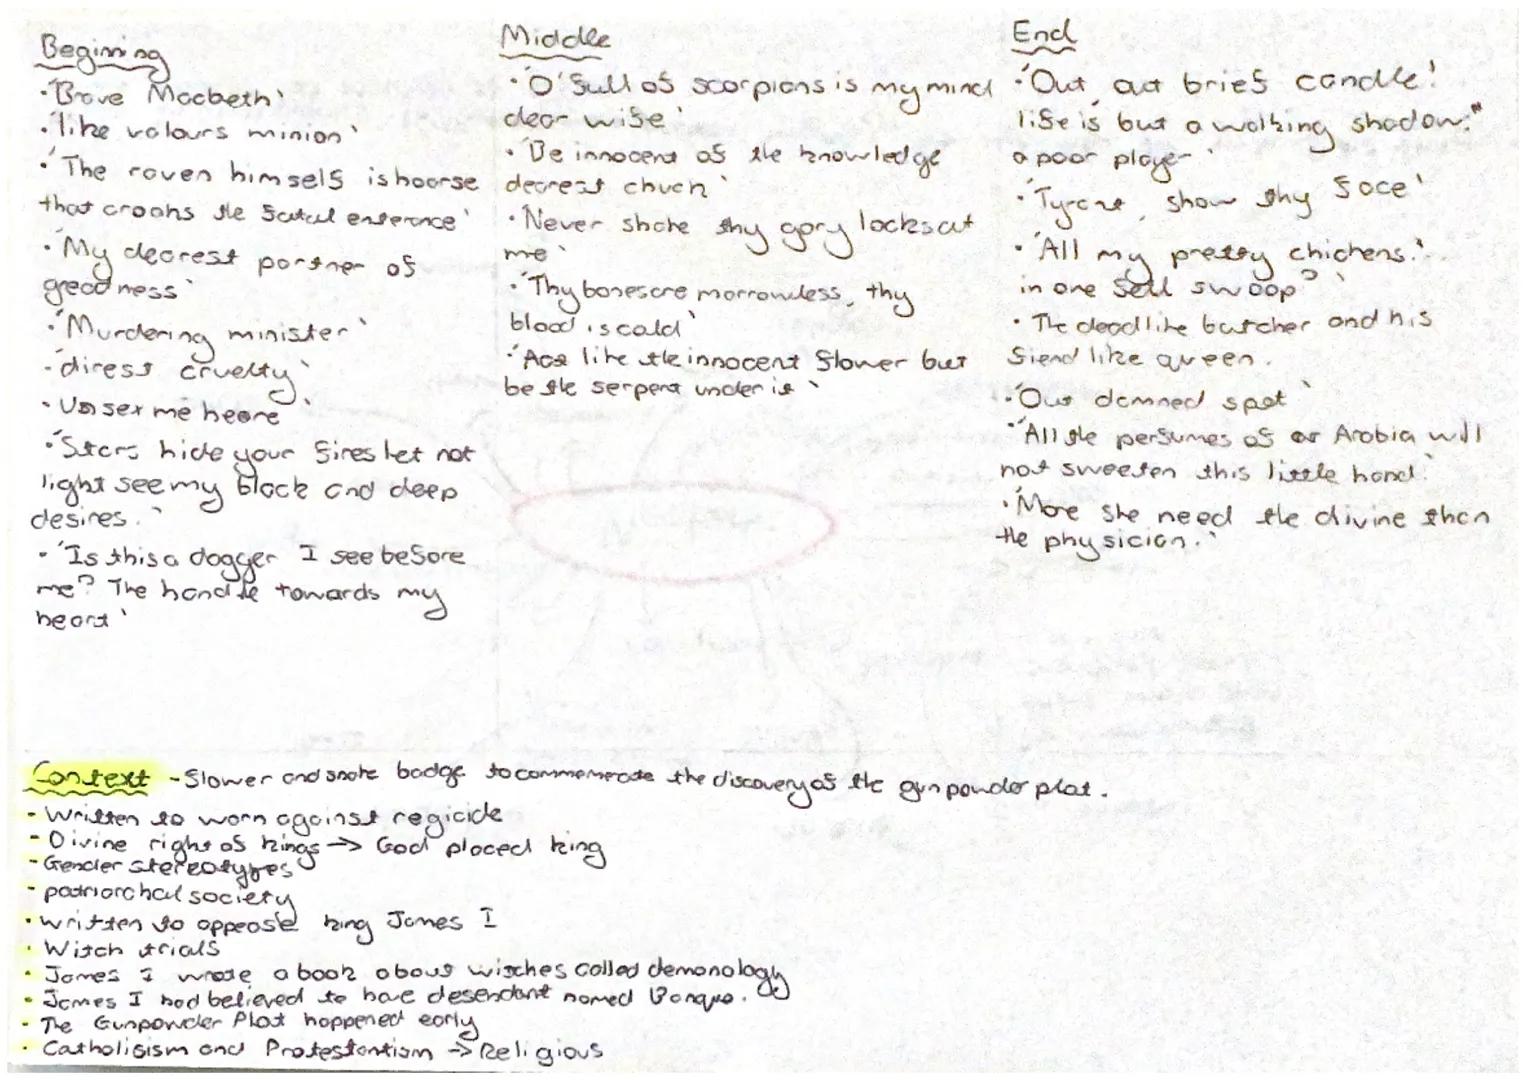 Begining
·'Brave Macbeth'
·'like valours minion'
·'The raven himself is hoarse
that croaks the fatal enterance'
·'My dearest partner of
greatness'
·'Murdering minister'
·'direst cruelty'
·Unsex me heare'
·'Stars hide your fires let not
light see my black and deep
desires.'
·'Is this a dagger I see before
me? The handle towards my
heart'
Middle
·'O' full of scorpions is my mind
dear wife'
·'Be innocent of the knowledge
dearest chuck'
·'Never shake thy gory locks at
me'
·'Thy bones are marrowless, thy
blood is cold'
·'Act like the innocent flower but
be the serpent under it'
End
·'Out, out brief candle!
life is but a walking shadow."
a poor player'
·'Tyrant, show thy face'
·'All my pretty chickens?...
in one fell swoop?'
·The dead like butcher and his
fiend like queen.
·'Out damned spot'
·'All the perfumes of Arabia will
not sweeten this little hand.'
·'More she need the divine than
the physician.'
Context - flower and snake badge to commemorate the discovery of the gunpowder plot.
- Written to warn against regicide
- Divine right of kings → God placed king
- Gender stereotypes
- patriarchal society
· written to appease king James I
· Witch trials
· James I wrote a book about witches called demonology
· James I had believed to have desendant named Banquo.
- The Gunpowder Plot happened early
· Catholisism and Protestantism → Religious